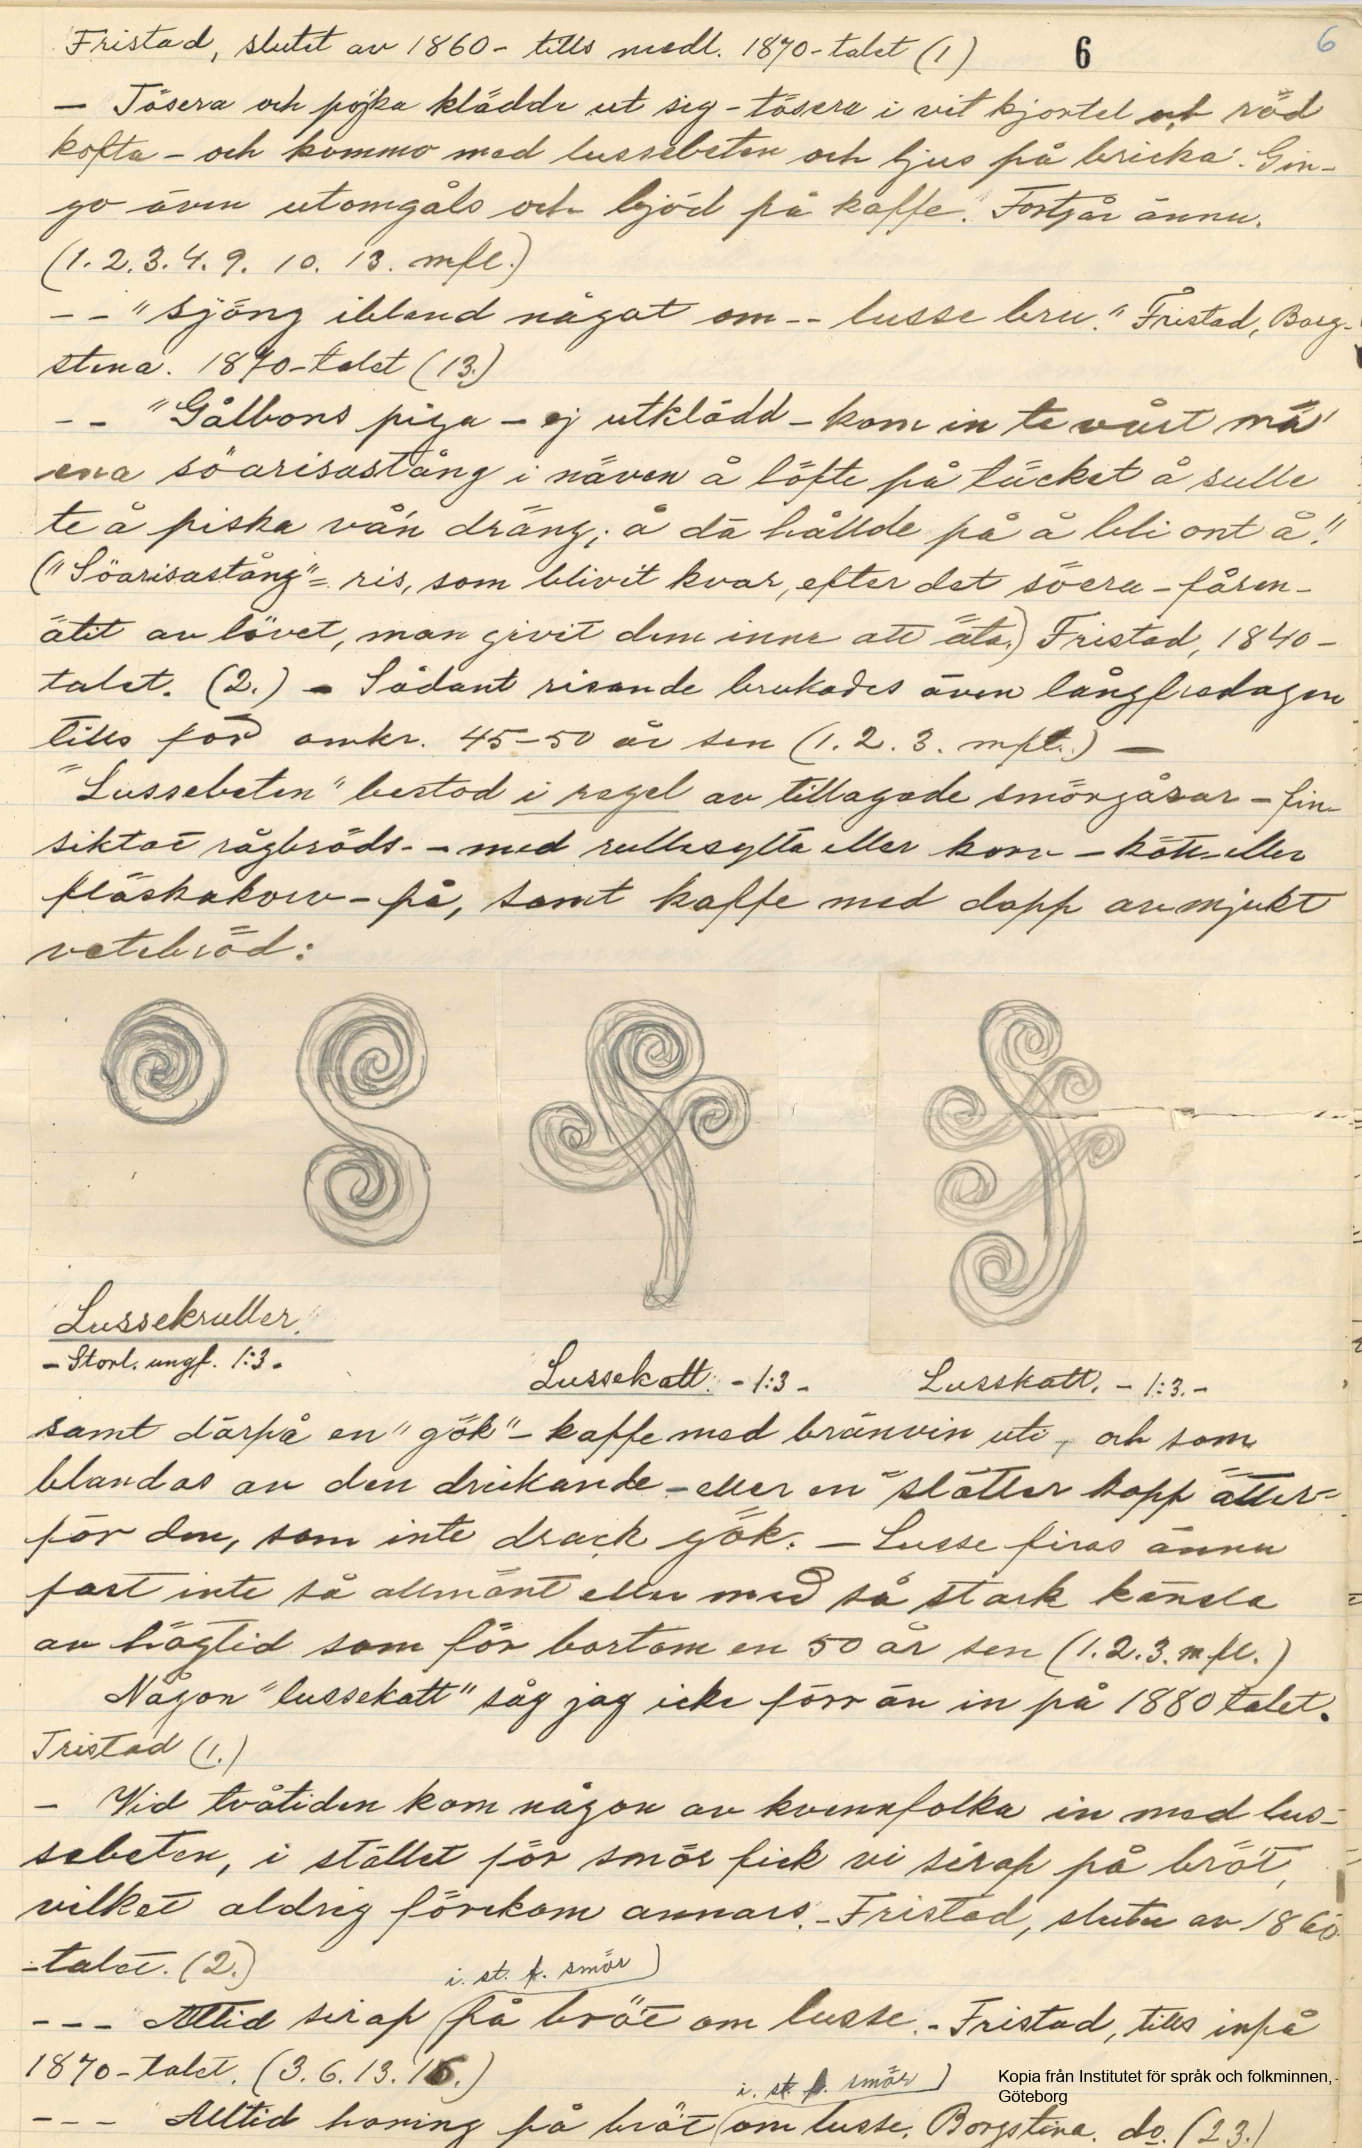 Fristad, slutet av 1860- tills medl. 1870-talet (1)
6
6
— Tösera och pöjka klädde ut sig – tösera i vit kjortel och röd
kofta – och kommo med lussebeten och ljus på bricka. Gin-
go även utomgåls och bjöd på kaffe. Fortgår ännu.
(1. 2. 3. 4. 9. 10. 13. mfl.)
– – "Sjöng ibland något om -- lusse bru." Fristad, Borg-
stena. 1870-talet (13.)
– – "Gålbons piga – ej utklädd – kom in te vårt mä
ena söarisastång i näven å löfte på täcket å sulle
te å piska vån dräng; å dä hållde på å bli ont å."
("Söarisastång" = ris, som blivit kvar, efter det söera – fåren –
ätit av lövet, man givit dem inne att äta.) Fristad, 1840-
talet. (2.) – Sådant risande brukades även långfredagen
tills för omkr. 45–50 år sen (1. 2. 3. mfl.) —
"Lussebeten" bestod i regel av tillagade smörgåsar – fin-
siktat rågbröds- – med rullesylta eller korv – kött- eller
fläskakorv – på, samt kaffe med dopp av mjukt
vetebröd:
Lussekruller.
– Storl. ungf. 1:3 –
Lussekatt. – 1:3 –
Lusskatt. – 1:3. –
samt därpå en "gök" – kaffe med brännvin uti, och som
blandas av den drickande – eller en "slätter kopp ätter"
för den, som inte drack gök. – Lusse firas ännu
fast inte så allmänt eller med så stark känsla
av högtid som för bortom en 50 år sen (1. 2. 3. m fl.)
Någon "lussekatt" såg jag icke förr än in på 1880 talet.
Fristad (1.)
– Vid tvåtiden kom någon av kvennfolka in med lus-
sebeten, i stället för smör fick vi sirap på bröt,
vilket aldrig förekom annars. – Fristad, slutet av 1860
-talet. (2.)
i. st. f. smör
– – – Alltid sirap på bröt om lusse. – Fristad, tills inpå
1870-talet. (3. 6. 13. 16.)
i. st. f. smör
– – – Alltid honing på bröt om lusse. Borgstena. do. (23.)
Kopia från Institutet för språk och folkminnen,
Göteborg